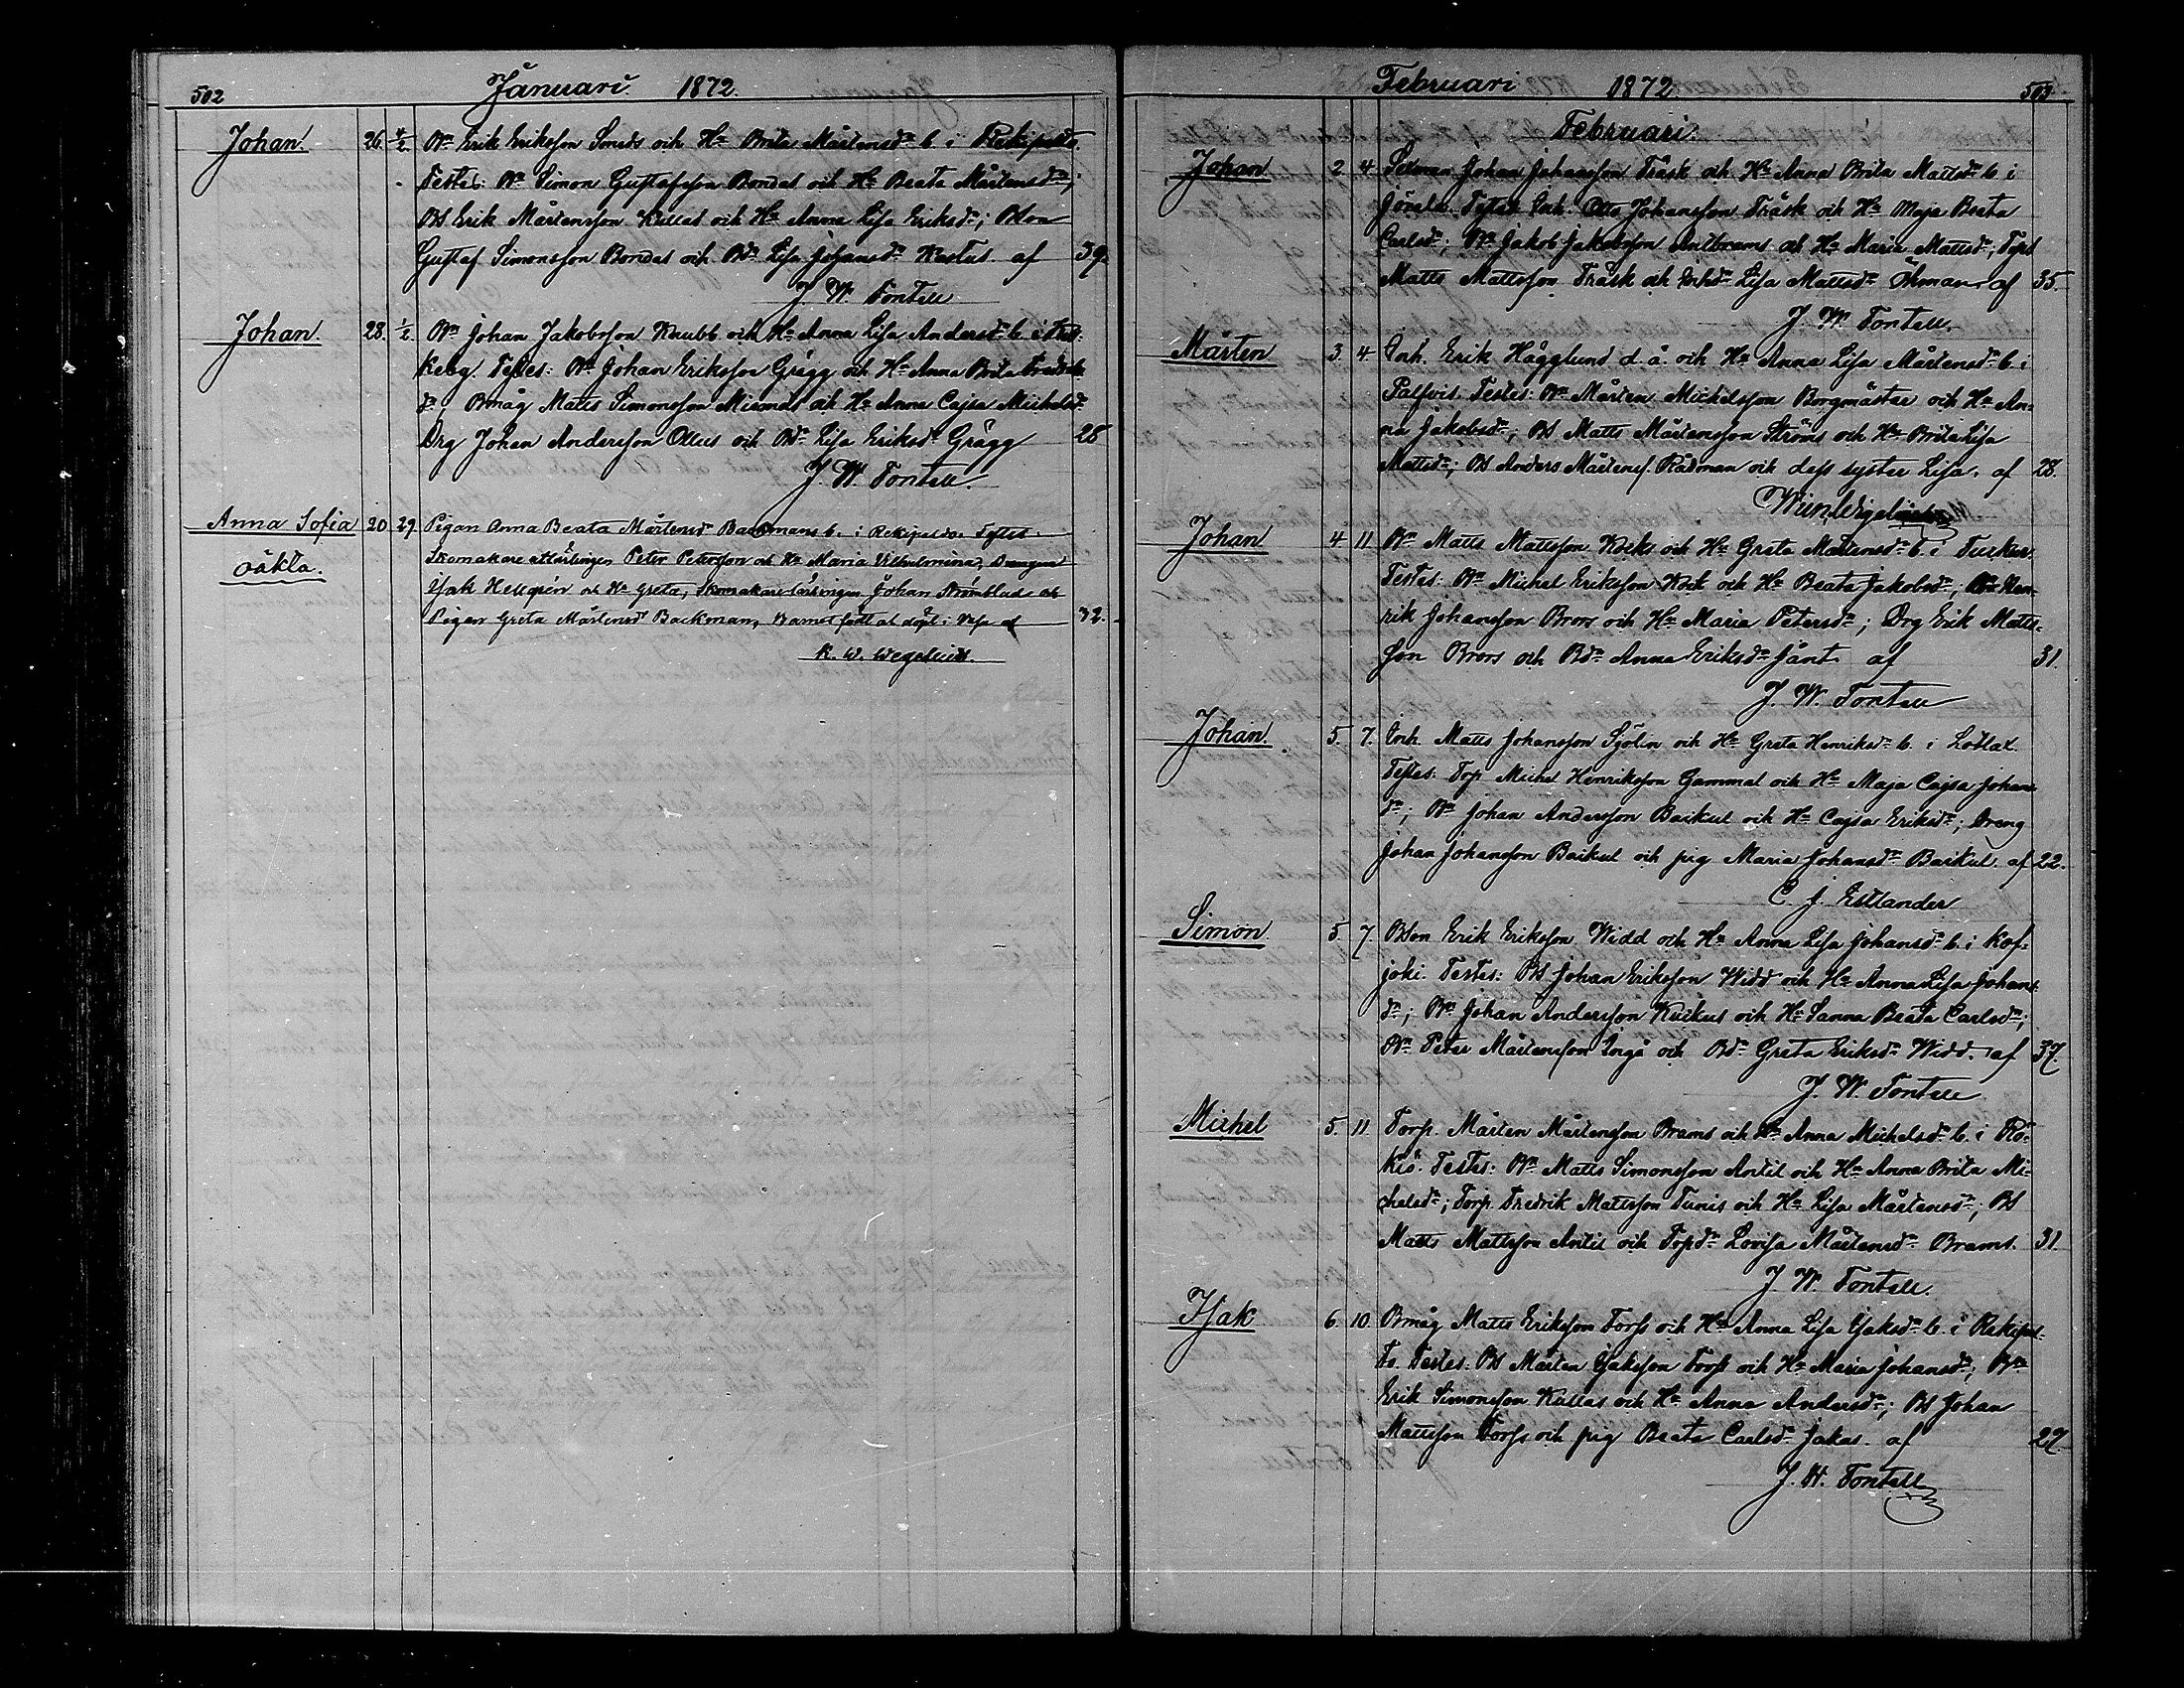 502 Januari 1872.
Johan 26. 4/2. Bn Erik Eriksson Smeds och Hu Brita Mårtensdr b. i Rekipelto.
Testes: Bn Simon Gustafsson Bondas och Hu Beata Mårtensdr;
Bs Erik Mårtensson Kullas och Hu Anna Lisa Eriksdr; Bson
Gustaf Simonsson Bondas och Bdr Lisa Johansdr Kastus af 39.
J. W. Fontell
Johan. 28. 1/2. Bn Johan Jakobsson Knubb och Hu Anna Lisa Andersdr b. i
Testes: Bn Johan Eriksson Grägg och Hu Anna Brita
dr; Bmåg Matts Simonsson och Hu Anna Cajsa Michelsdr
Drg Johan Andersson Ollus och Bdr Lisa Eriksdr Grägg 28
J. W. Fontell.
Anna Sofia 20 29 Pigan Anna Beata Mårtensdr Backmans b. i Rekipeldo. Testes
oäkta. Skomakare Peter Petersson och Hu Maria Vilhelmina, Drengen
Isak Hellgrén och Hu Greta, Skomakare lärlingen Johan Strömblad och
Pigan Greta Mårtensdr Backman, Barnet födt at döpt i Vasa af 32.
K. W. Wegelius.
Februari 1872 503
Februari.
Johan 2 4 Sexman Johan Johansson Träsk och Hu Anna Brita Mattsdr b. i
Jöräla. Testes Inh. Otto Johansson Träsk och Hu Maja Beata
Carlsdr; Bn Jakob Jakobsson Antbrams och Hu Maria Mattsdr; Tops
Matts Mattsson Träsk och Inhdr Lisa Mattsdr Öhman af 35.
J. W. Fontell.
Mårten 3. 4 Inh. Erik Hägglund d. ä. och Hu Anna Lisa Mårtensdr b. i
Palvis. Testes: Bn Mårten Michelsson Borgmästar och Hu An-
na Jakobsdr; Bs Matts Mårtensson Ströms och Hu Brita Lisa
Mattsdr; Bs Anders Mårtenss. Rådman och dess syster Lisa. af 28.
Johan 4 11 Bn Matts Mattsson Kocks och Hu Greta Mårtensdr b. i Tuckur.
Testes: Bn Michel Eriksson Kock och Hu Beata Jakobsdr; Bn Hen-
rik Johansson Brors och Hu Maria Petersdr; Drg Erik Matts-
son Brors och Bdr Anna Eriksdr Jänt af 31.
J. W. Fontell
Johan. 5. 7. Inh. Matts Johansson Sjölin och Hu Greta Henriksdr b. i Lotlax.
Testes: Torp Michel Henriksson Gammal och Hu Maja Cajsa Johans
dr; Bn Johan Andersson Backul och Hu Cajsa Eriksdr; Dreng
Johan Johansson Backul och pig Maria Johansdr Backul. af 22.
C. J. Estlander
Simon. 5. 7. Bson Erik Eriksson Widd och Hu Anna Lisa Johansdr b. i Kos-
joki. Testes: Bs Johan Eriksson Widd och Hu Anna Lisa Johans-
dr; Bn Johan Andersson Kuckus och Hu Sanna Beata Carlsdr;
Bn Peter Mårtensson Ingo och Bdr Greta Eriksdr Widd. af 37.
J. W. Fontell
Michel 5. 11. Torp. Mårten Mårtensson Brams och Hu Anna Michelsdr b. i Rö-
kiö. Testes: Bn Matts Simonsson Antil och Hu Anna Brita Mi-
chelsdr; Torp. Fredrik Mattsson Tunis och Hu Lisa Mårtensdr; Bs
Matts Mattsson Antil och Topdr Lovisa Mårtensdr Brams. 31.
J. W. Fontell.
Isak 6. 10. Bmåg Matts Eriksson Forss och Hu Anna Lisa Isaksdr b. i Rekipel-
to. Testes: Bs Mårten Isaksson Forss och Hu Maria Johansdr; Bn
Erik Simonsson Kullas och Hu Anna Andersdr; Bs Johan
Mattsson Forss och pig Beata Carlsdr Jakas. af 27.
J. W. Fontell